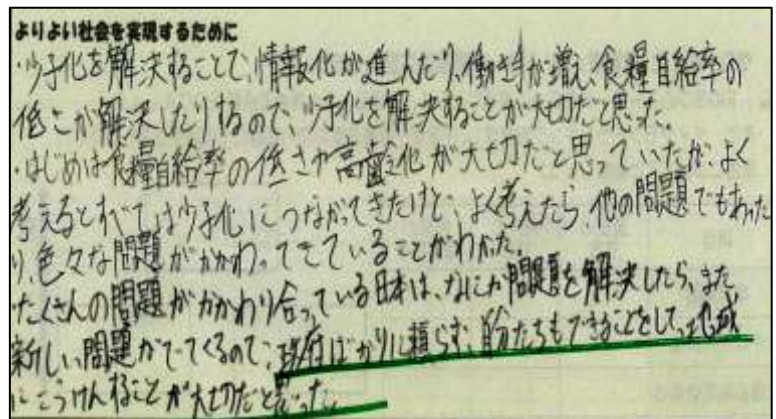 よりよい社会を実現するために
・少子化を解決することで、情報化が進んだり、働き手が増え、食糧自給率の
低さが解決したりするので、少子化を解決することが大切だと思った。
・はじめは食糧自給率の低さや高齢化が大切だと思っていたが、よく
考えるとすべては少子化につながってきたけど、よく考えたら、他の問題でもあった
り、色々な問題がかかわってきていることがわかった。
たくさんの問題がかかわり合っている日本は、なにか問題を解決したら、また
新しい問題がでてくるので、政府ばかりに頼らず、自分たちもできることをして、地域
にこうけんすることが大切だと思った。